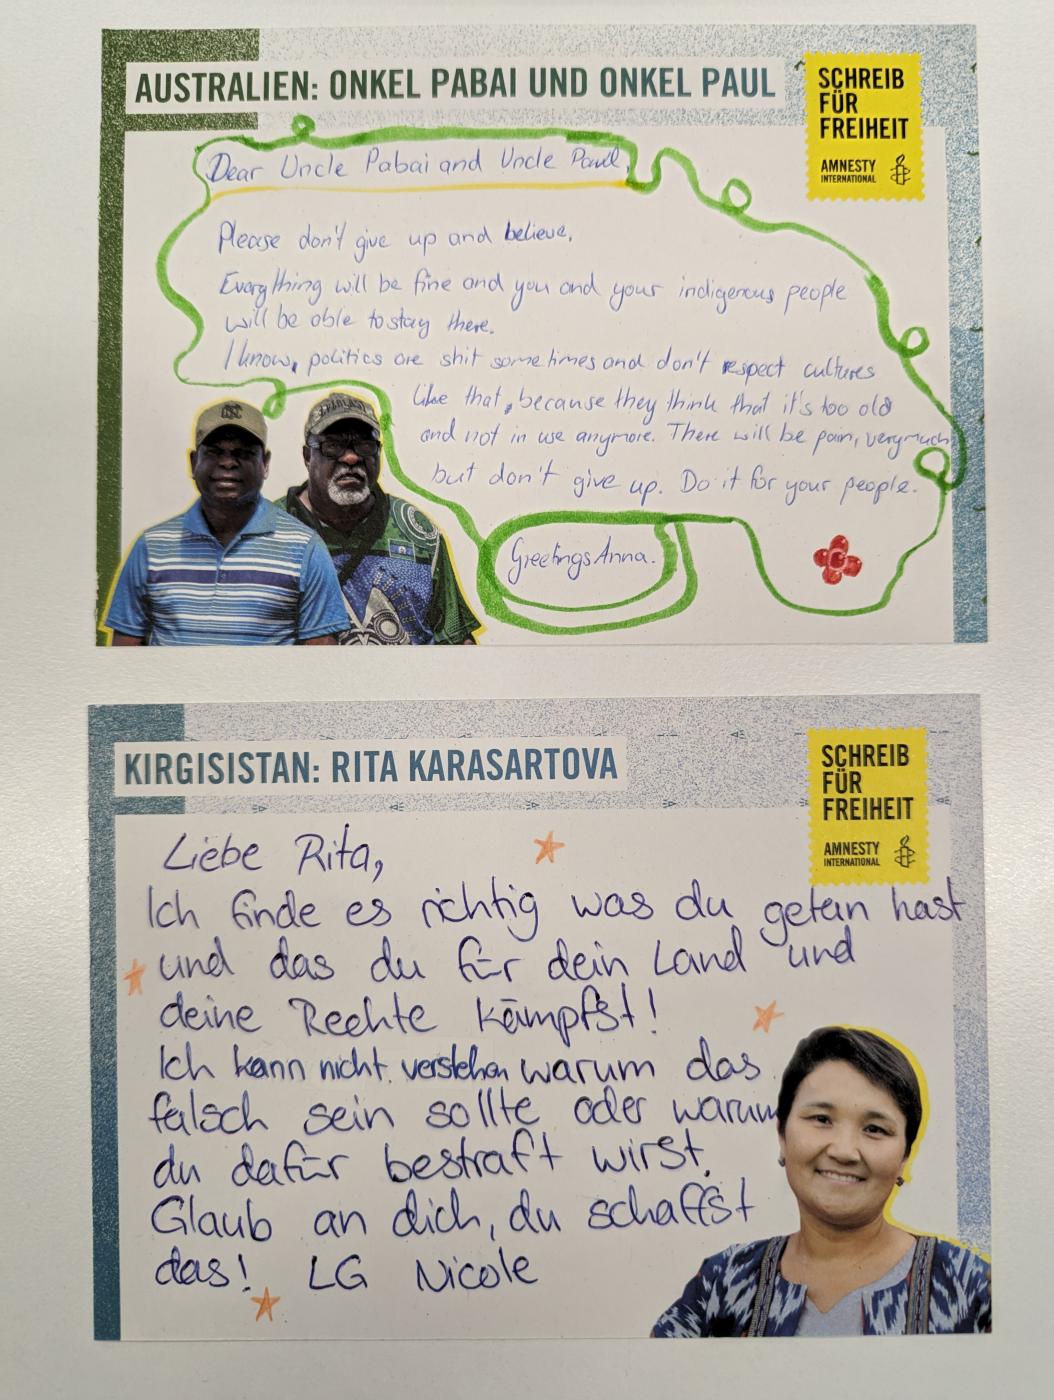 AUSTRALIEN: ONKEL PABAI UND ONKEL PAUL
SCHREIB
FÜR
FREIHEIT
AMNESTY
INTERNATIONAL
Dear Uncle Pabai and Uncle Paul,
Please don't give up and believe,
Everything will be fine and you and your indigenous people
will be able to stay there.
I know, politics are shit sometimes and don't respect cultures
like that, because they think that it's too old
and not in use anymore. There will be pain, very much
but don't give up. Do it for your people.
Greetings Anna.
EVERLAST
KIRGISISTAN: RITA KARASARTOVA
SCHREIB
FÜR
FREIHEIT
AMNESTY
INTERNATIONAL
Liebe Rita,
Ich finde es richtig was du getan hast
und das du für dein Land und
deine Rechte kämpfst!
Ich kann nicht verstehen warum das
falsch sein sollte oder warum
du dafür bestraft wirst.
Glaub an dich, du schaffst
das! LG Nicole